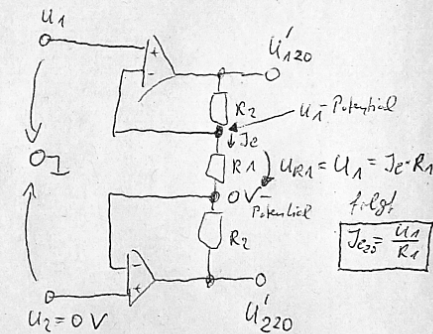 U1
U'120
R2
U1-Potential
Ie
R1
UR1 = U1 = Ie · R1
0V-
Potential
folgt
R2
U2 = 0V
U'220